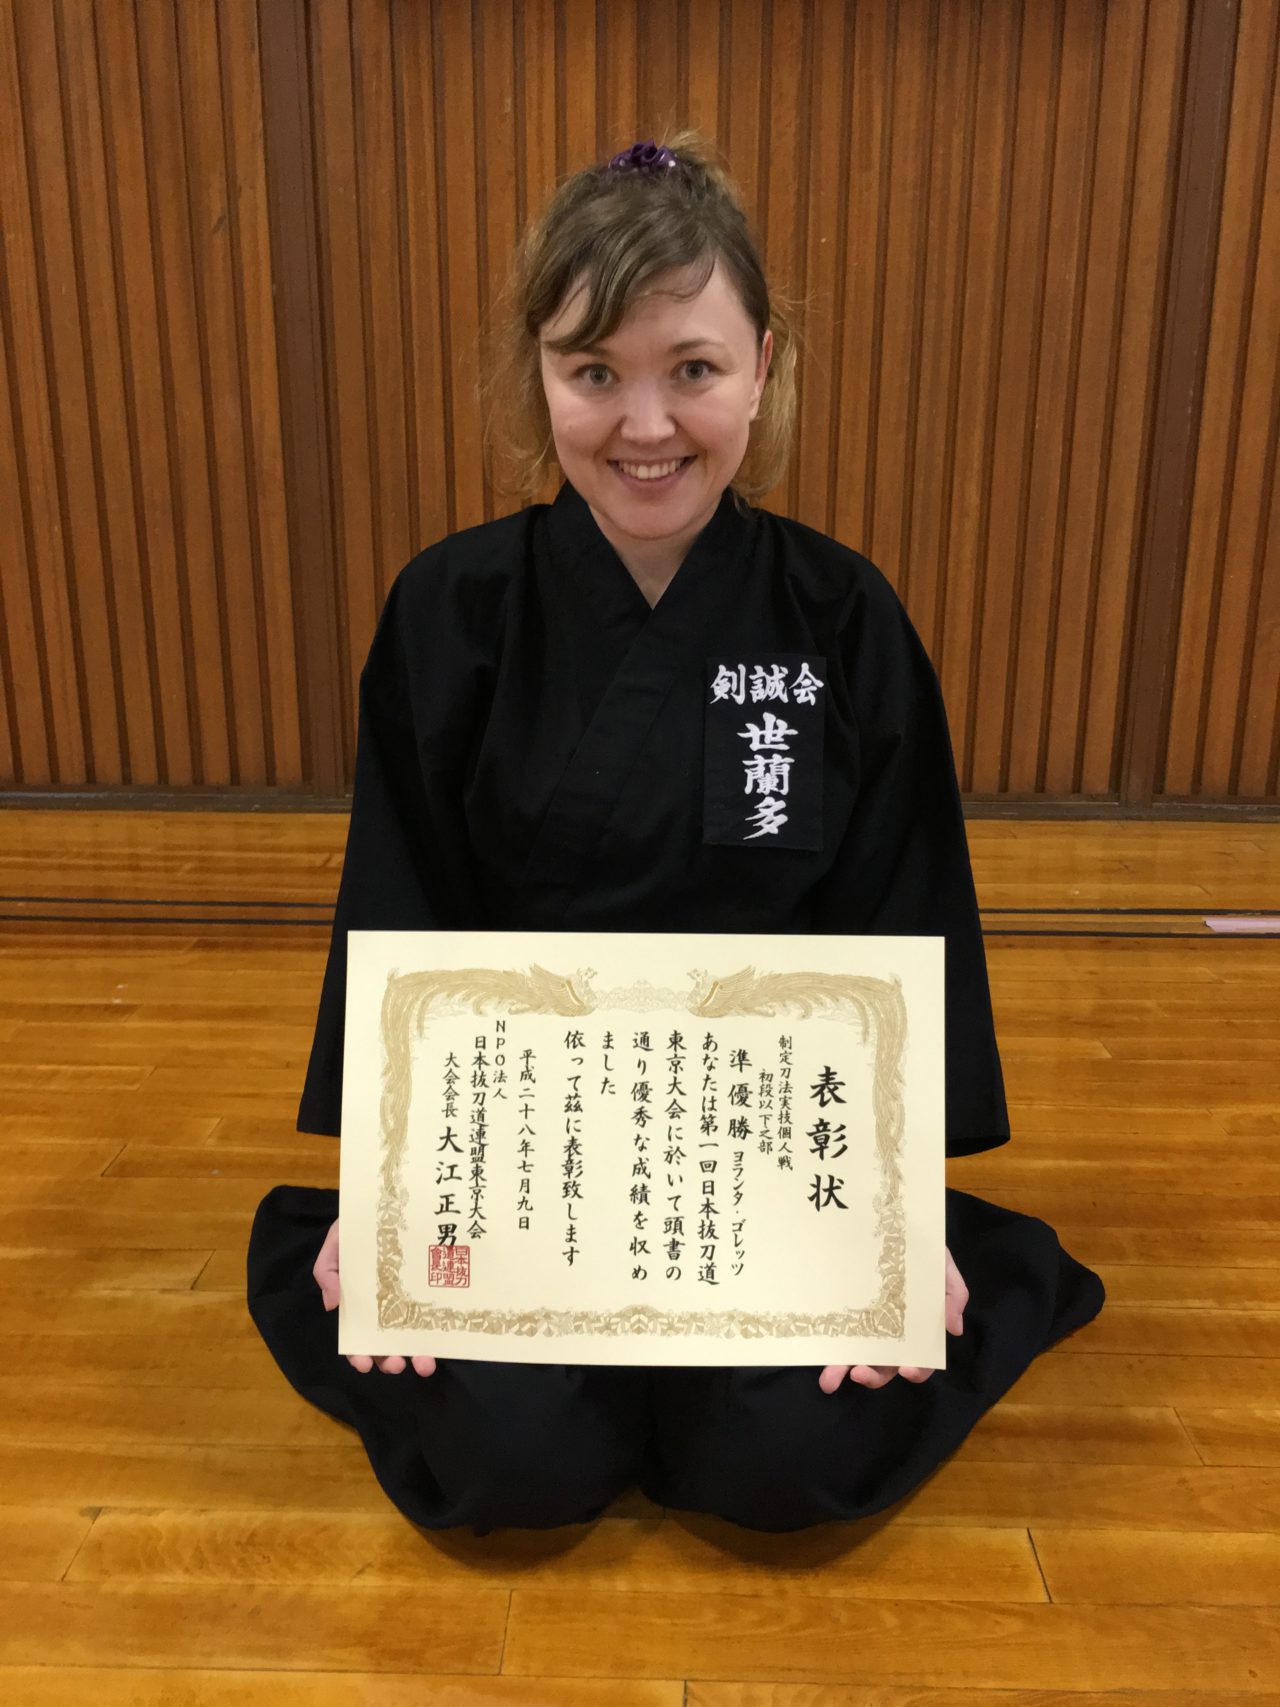 剣誠会
世蘭多
表彰状
制定刀法実技個人戦
初段以下之部
準優勝 ヨランタ・ゴレッツ
あなたは第一回日本抜刀道
東京大会に於いて頭書の
通り優秀な成績を収め
ました
依って茲に表彰致します
平成二十八年七月九日
NPO法人
日本抜刀道連盟東京大会
大会会長 大江正男